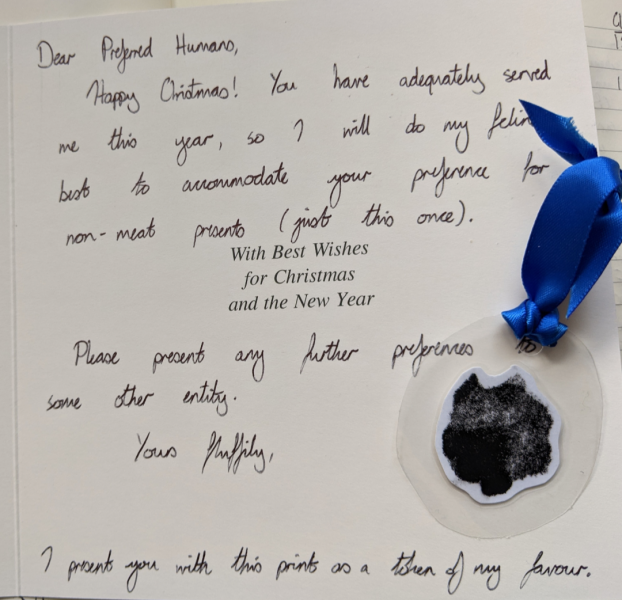 Dear Preferred Humans,
Happy Christmas! You have adequately served
me this year, so I will do my felin
best to accommodate your preference for
non-meat presents (just this once).
With Best Wishes
for Christmas
and the New Year
Please present any further preferences to
some other entity.
Yours fluffily,
I presents you with this prints as a token of my favour.